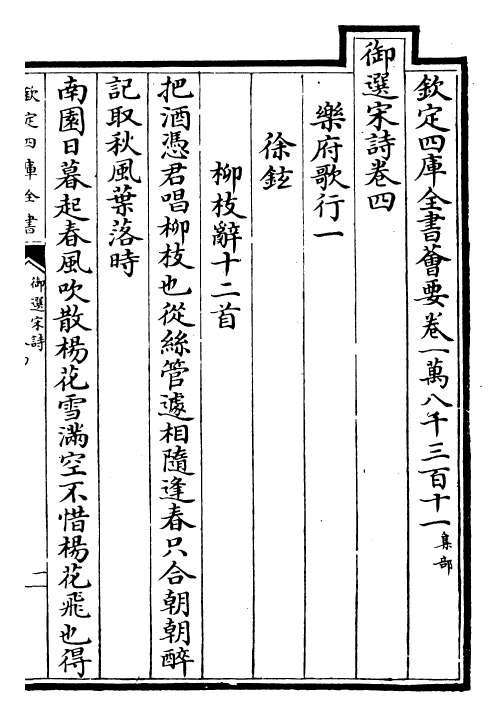 欽定四庫全書薈要卷一萬八千三百十一集部
御選宋詩卷四
樂府歌行一
徐鉉
柳枝辭十二首
把酒憑君唱柳枝也從絲管遞相隨逢春只合朝朝醉
記取秋風葉落時
南園日暮起春風吹散楊花雪滿空不惜楊花飛也得
欽定四庫全書
御選宋詩